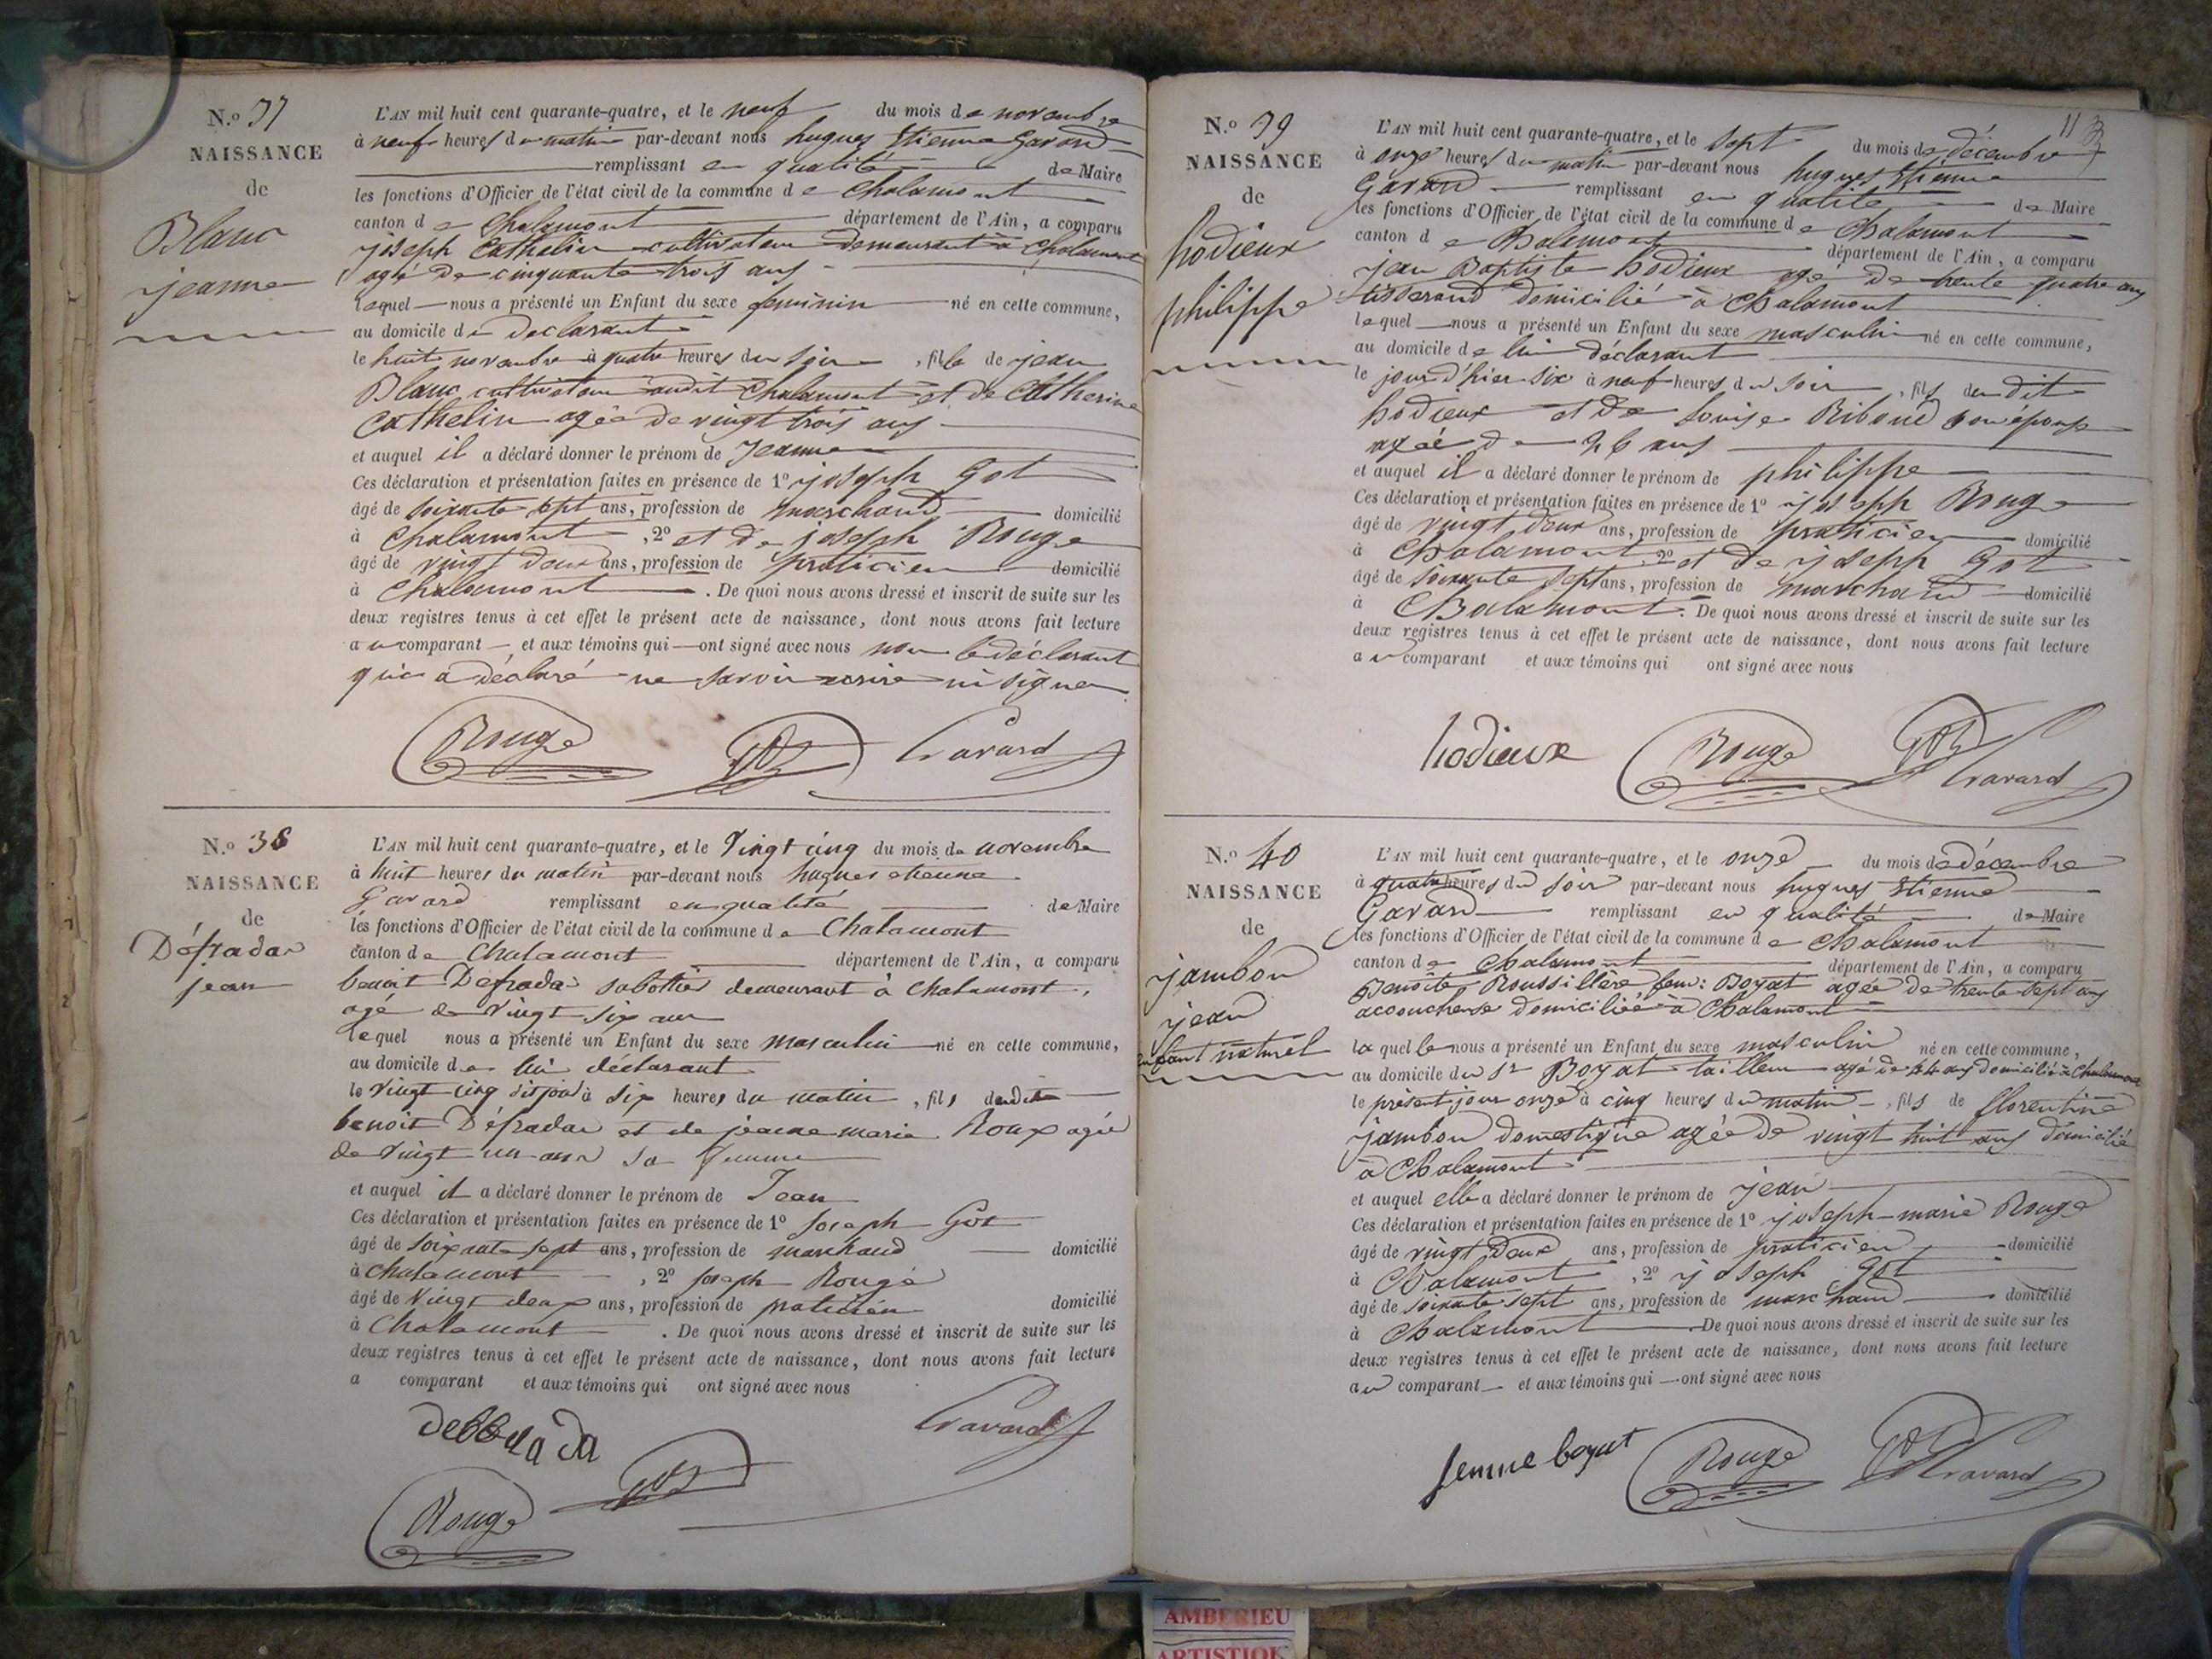 N.o 37
NAISSANCE
de
Blanc
jeanne
L'AN mil huit cent quarante-quatre, et le neuf du mois de novembre
à neuf heures du matin par-devant nous hugues Etienne Gavard
remplissant en qualité de Maire
les fonctions d'Officier de l'état civil de la commune de Chalamont
canton de Chalamont département de l'Ain, a comparu
joseph Cathelin cultivateur demeurant à Chalamont
agé de cinquante trois ans
lequel nous a présenté un Enfant du sexe feminin né en cette commune,
au domicile du declarant
le huit novembre à quatre heures du soir, fille de jean
Blanc cultivateur audit Chalamont et de Catherine
Cathelin agée de vingt trois ans
et auquel il a déclaré donner le prénom de Jeanne
Ces déclaration et présentation faites en présence de 1o joseph Got
âgé de soixante sept ans, profession de marchand domicilié
à Chalamont, 2o et de joseph Rouge
âgé de vingt deux ans, profession de praticien domicilié
à Chalamont. De quoi nous avons dressé et inscrit de suite sur les
deux registres tenus à cet effet le présent acte de naissance, dont nous avons fait lecture
au comparant et aux témoins qui ont signé avec nous non le déclarant
qui a déclaré ne savoir ecrire ni signer
Rouge Got Gavard
N.o 38
NAISSANCE
de
Défradas
jean
L'AN mil huit cent quarante-quatre, et le Vingt cinq du mois de novembre
à huit heures du matin par-devant nous hugues etienne
Gavard remplissant en qualité de Maire
les fonctions d'Officier de l'état civil de la commune de Chalamont
canton de Chalamont département de l'Ain, a comparu
benoit Défradas sabottier demeurant à Chalamont,
agé de Vingt six ans
lequel nous a présenté un Enfant du sexe masculin né en cette commune,
au domicile de lui déclarant
le Vingt cinq dit jour à six heures du matin, fils dudit
benoit Défradas et de jeanne marie Roux agée
de Vingt un ans sa femme
et auquel il a déclaré donner le prénom de Jean
Ces déclaration et présentation faites en présence de 1o Joseph Got
âgé de soixante sept ans, profession de marchand domicilié
à Chalamont, 2o Joseph Rouge
âgé de Vingt deux ans, profession de praticien domicilié
à Chalamont. De quoi nous avons dressé et inscrit de suite sur les
deux registres tenus à cet effet le présent acte de naissance, dont nous avons fait lecture
a comparant et aux témoins qui ont signé avec nous
Gavard
Rouge Got
N.o 39
NAISSANCE
de
hodieux
philippe
L'AN mil huit cent quarante-quatre, et le sept du mois de décembre
à onze heures du matin par-devant nous hugues Etienne
Gavard remplissant en qualité de Maire
les fonctions d'Officier de l'état civil de la commune de Chalamont
canton de Chalamont département de l'Ain, a comparu
jean Baptiste hodieux agé de trente quatre ans
tisserand domicilié à Chalamont
lequel nous a présenté un Enfant du sexe masculin né en cette commune,
au domicile de lui déclarant
le jour d'hier six à neuf heures du soir, fils du dit
hodieux et de Louise Riboud son épouse
agée de 26 ans
et auquel il a déclaré donner le prénom de philippe
Ces déclaration et présentation faites en présence de 1o joseph Rouge
âgé de vingt deux ans, profession de praticien domicilié
à Chalamont 2o et de joseph Got
âgé de soixante sept ans, profession de marchand domicilié
à Chalamont. De quoi nous avons dressé et inscrit de suite sur les
deux registres tenus à cet effet le présent acte de naissance, dont nous avons fait lecture
au comparant et aux témoins qui ont signé avec nous
hodieux Rouge Got Gavard
N.o 40
NAISSANCE
de
jambon
jean
enfant naturel
L'AN mil huit cent quarante-quatre, et le onze du mois de décembre
à quatre heures du soir par-devant nous hugues Etienne
Gavard remplissant en qualité de Maire
les fonctions d'Officier de l'état civil de la commune de Chalamont
canton de Chalamont département de l'Ain, a comparu
Benoite Roussillère fem: Boyat agée de trente sept ans
accoucheuse domiciliée à Chalamont
laquelle nous a présenté un Enfant du sexe masculin né en cette commune,
au domicile du Sr Boyat tailleur agé de 44 ans domicilié à Chalamont
le présent jour onze à cinq heures du matin, fils de florentine
jambon domestique agée de vingt huit ans domicilié
à Chalamont
et auquel elle a déclaré donner le prénom de jean
Ces déclaration et présentation faites en présence de 1o joseph-marie Rouge
âgé de vingt deux ans, profession de praticien domicilié
à Chalamont, 2o joseph Got
âgé de soixante sept ans, profession de marchand domicilié
à Chalamont. De quoi nous avons dressé et inscrit de suite sur les
deux registres tenus à cet effet le présent acte de naissance, dont nous avons fait lecture
au comparant et aux témoins qui ont signé avec nous
femme boyat Rouge Got Gavard
AMBERIEU
ARTISTIQ